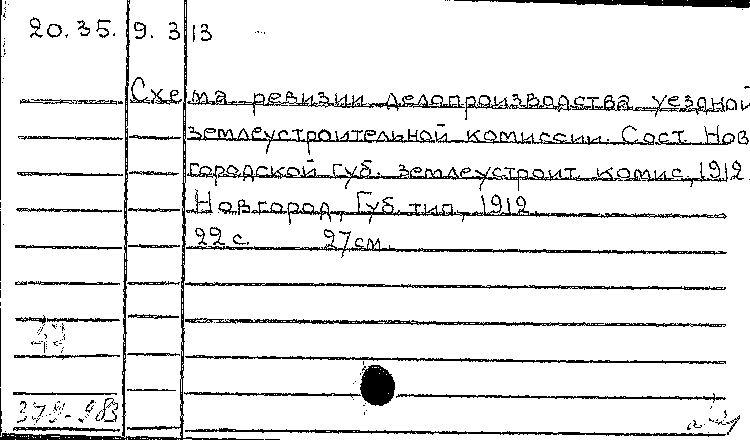 20.35.9.3 13
Схема ревизии делопроизводства уездной
землеустроительной комиссии. Сост. Нов
городской губ. землеустроит. комис., 1912.
Новгород, Губ. тип., 1912.
22 с. 27 см.
379-983